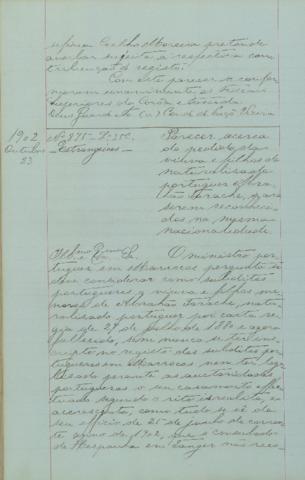 Coelho Moreira pretende
a respeito a con-
tribuição de registo.
Com este parecer se confor-
maram unanimemente os fiscaes
superiores da Corôa e Fazenda
Deus Guarde
1902
Outubro
23
Nº 875 -
Estrangeiros -
Parecer acerca
do pedido da
viuva e filhos do
naturalisado
portuguez Abra-
hão para
serem reconheci-
dos na mesma
nacionalidade.
Illmo Exmo Sr. O ministro por-
tuguez em Marrocos pergunta si
deve considerar como subditos
portuguezes a viuva e filhos me-
nores de Abrahão natu-
ralisado portuguez por carta re-
gia de 27 de julho de 1880 e agora
fallecido, sem nunca se ter ins-
cripto no registo dos subditos por-
tuguezes em Marrocos nem ter lega-
lisado perante as auctoridades
portuguezas o seu casamento effe-
ctuado segundo o rito israelita, e
acrescenta, como tudo se vê do
seu officio de 25 de junho do corren-
te anno de 1902, que o consulado
de Hespanha em Tanger não reco-